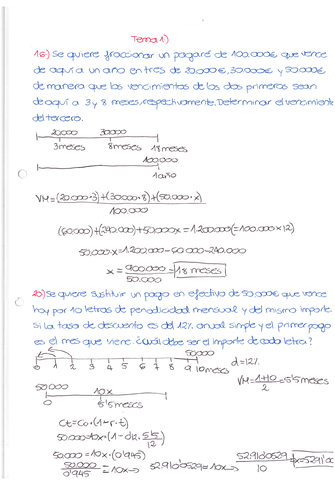 Tema 1)
1º) Se quiere fraccionar un pagaré de 100.000€ que vence
de aquí a un año en tres de 20.000€, 30.000€ y 50.000€
de manera que los vencimientos de los dos primeros sean
de aquí a 3 y 8 meses, respectivamente. Determinar el vencimiento
del tercero.
20.000 30.000
3 meses 8 meses 18 meses
100.000
1 año
VM = (20.000·3)+(30.000·8)+(50.000·x)
100.000
(60.000)+(240.000)+50.000x = 1.200.000 (=100.000×12)
50.000·x = 1.200.000 - 60.000 - 240.000
x = 900.000 = 18 meses
50.000
2º) Se quiere sustituir un pago en efectivo de 50.000€ que vence
hoy por 10 letras de periodicidad mensual y del mismo importe.
Si la tasa de descuento es del 12% anual simple y el primer pago
es el mes que viene. ¿Cuál debe ser el importe de cada letra?
50.000
0 1 2 3 4 5 6 7 8 9 10 meses d=12%
VM = 1+10 = 5'5 meses
2
50.000 10x
0 5'5 meses
Ct = Co·(1-r·t)
50.000 = 10x·(1-0'12·5'5)
12
50.000 = 10x·(0'945)
50.000 = 10x → 52.910'0529 = 10x → 52.910'0529
0'945 10